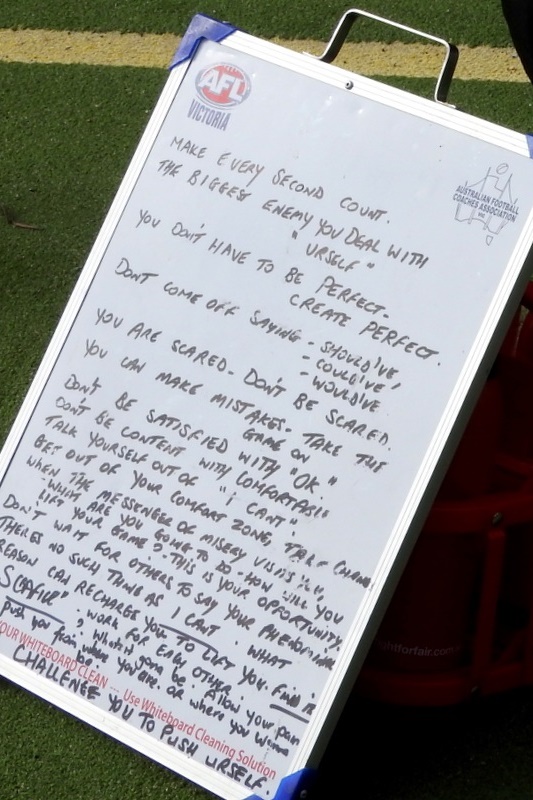 AFL
VICTORIA
AUSTRALIAN FOOTBALL
COACHES ASSOCIATION
MAKE EVERY SECOND COUNT.
THE BIGGEST ENEMY YOU DEAL WITH
"URSELF"
YOU DON'T HAVE TO BE PERFECT-
CREATE PERFECT.
DONT COME OFF SAYING - SHOULD'VE,
- COULD'VE'
- WOULD'VE
YOU ARE SCARED- DON'T BE SCARED.
YOU CAN MAKE MISTAKES- TAKE THE
GAME ON"
DON'T BE SATISFIED WITH "OK."
DON'T BE CONTENT WITH COMFORTABLE
TALK YOURSELF OUT OF "I CAN'T"
GET OUT OF YOUR COMFORT ZONE, TAKE CHANCE
WHEN THE MESSENGER OF MISERY VISITS
WHAT ARE YOU GOING TO DO- HOW WILL YOU
LIFT YOUR GAME? THIS IS YOUR OPPORTUNITY.
DON'T WAIT FOR OTHERS TO SAY YOUR
THERES NO SUCH THING AS I CAN'T. WHAT
REASON CAN RECHARGE YOU TO LIFT YOU. FIND IT
WORK FOR EACH OTHER.
What's it gonna be? Allow your pain
push you from where you are. or where you wanna
be.
YOUR WHITEBOARD CLEAN ... Use Whiteboard Cleaning Solution
CHALLENGE YOU TO PUSH URSELF.
ghtforfair.com